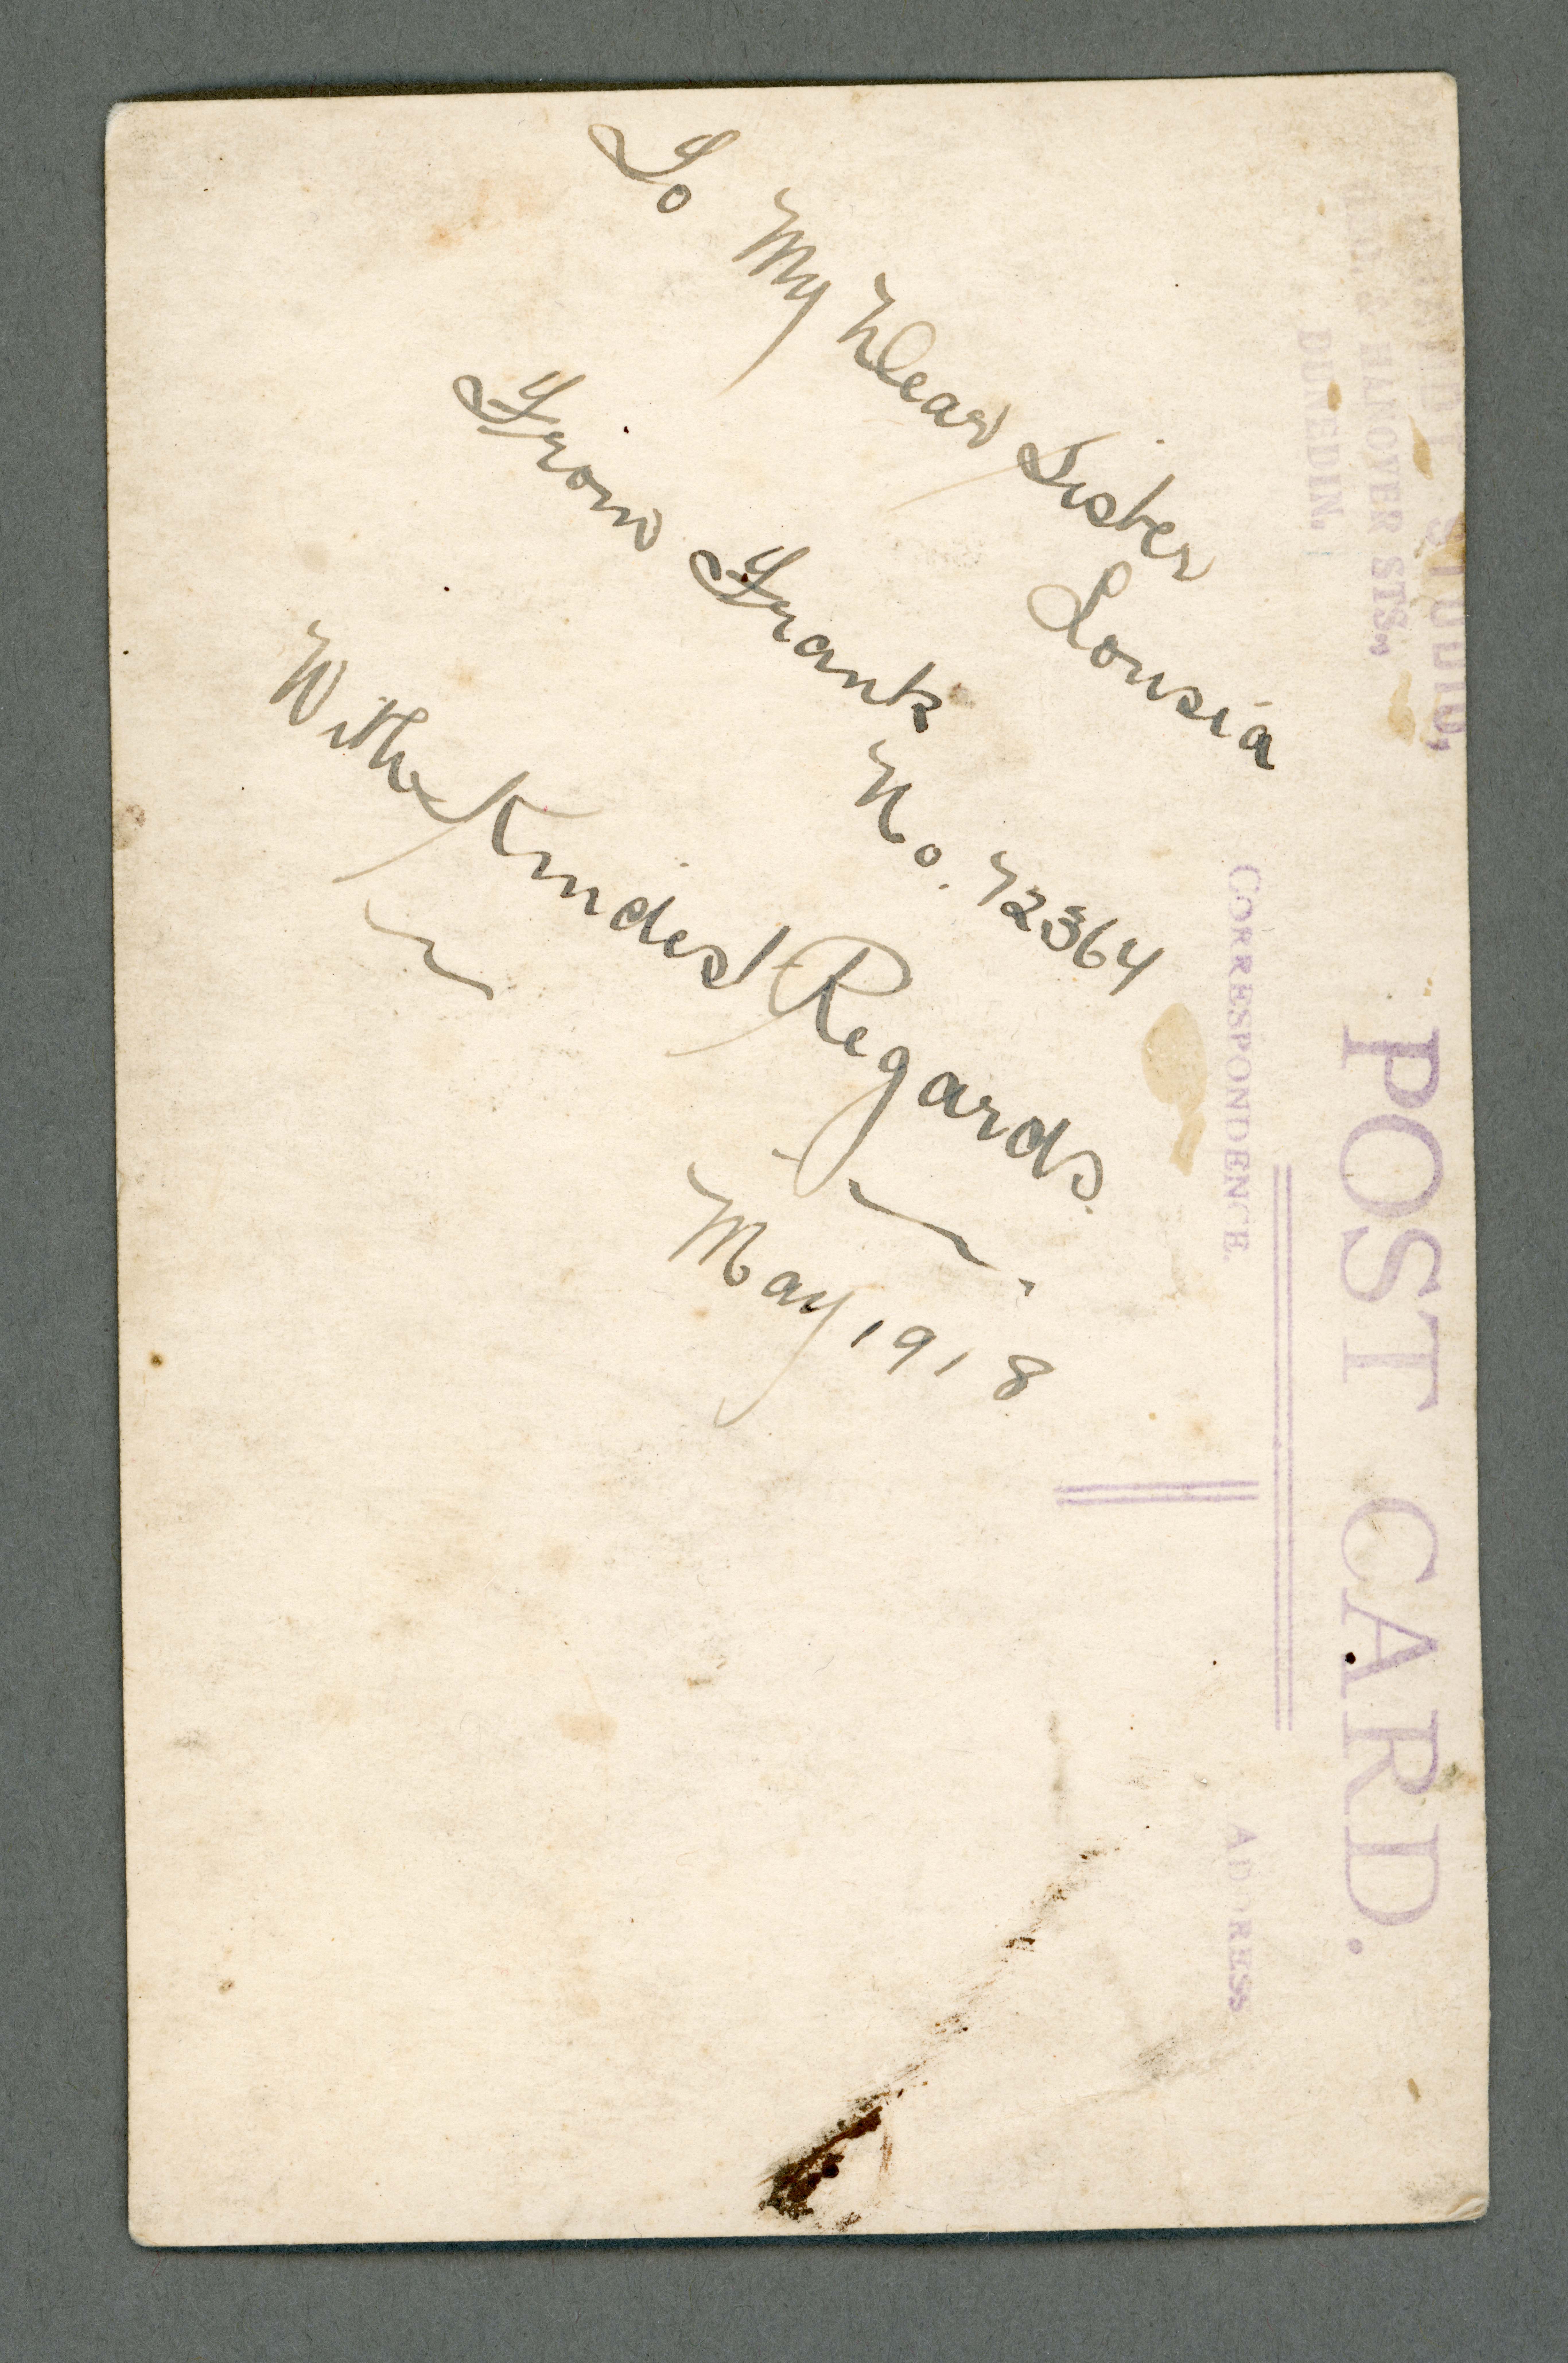 STUDIO,
HANOVER STS.,
DUNEDIN.
POST CARD.
CORRESPONDENCE.
ADDRESS
To My Dear Sister
Lousia
From Frank
No. 72364
With Kindest Regards.
May 1918